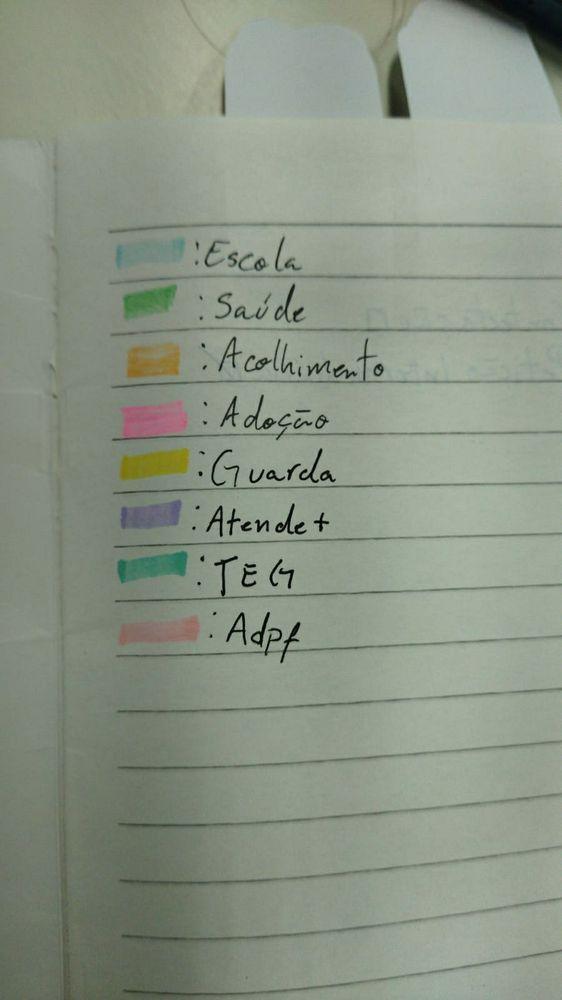 : Escola
: Saúde
: Acolhimento
: Adoção
: Guarda
: Atende+
: TEG
: Adpf